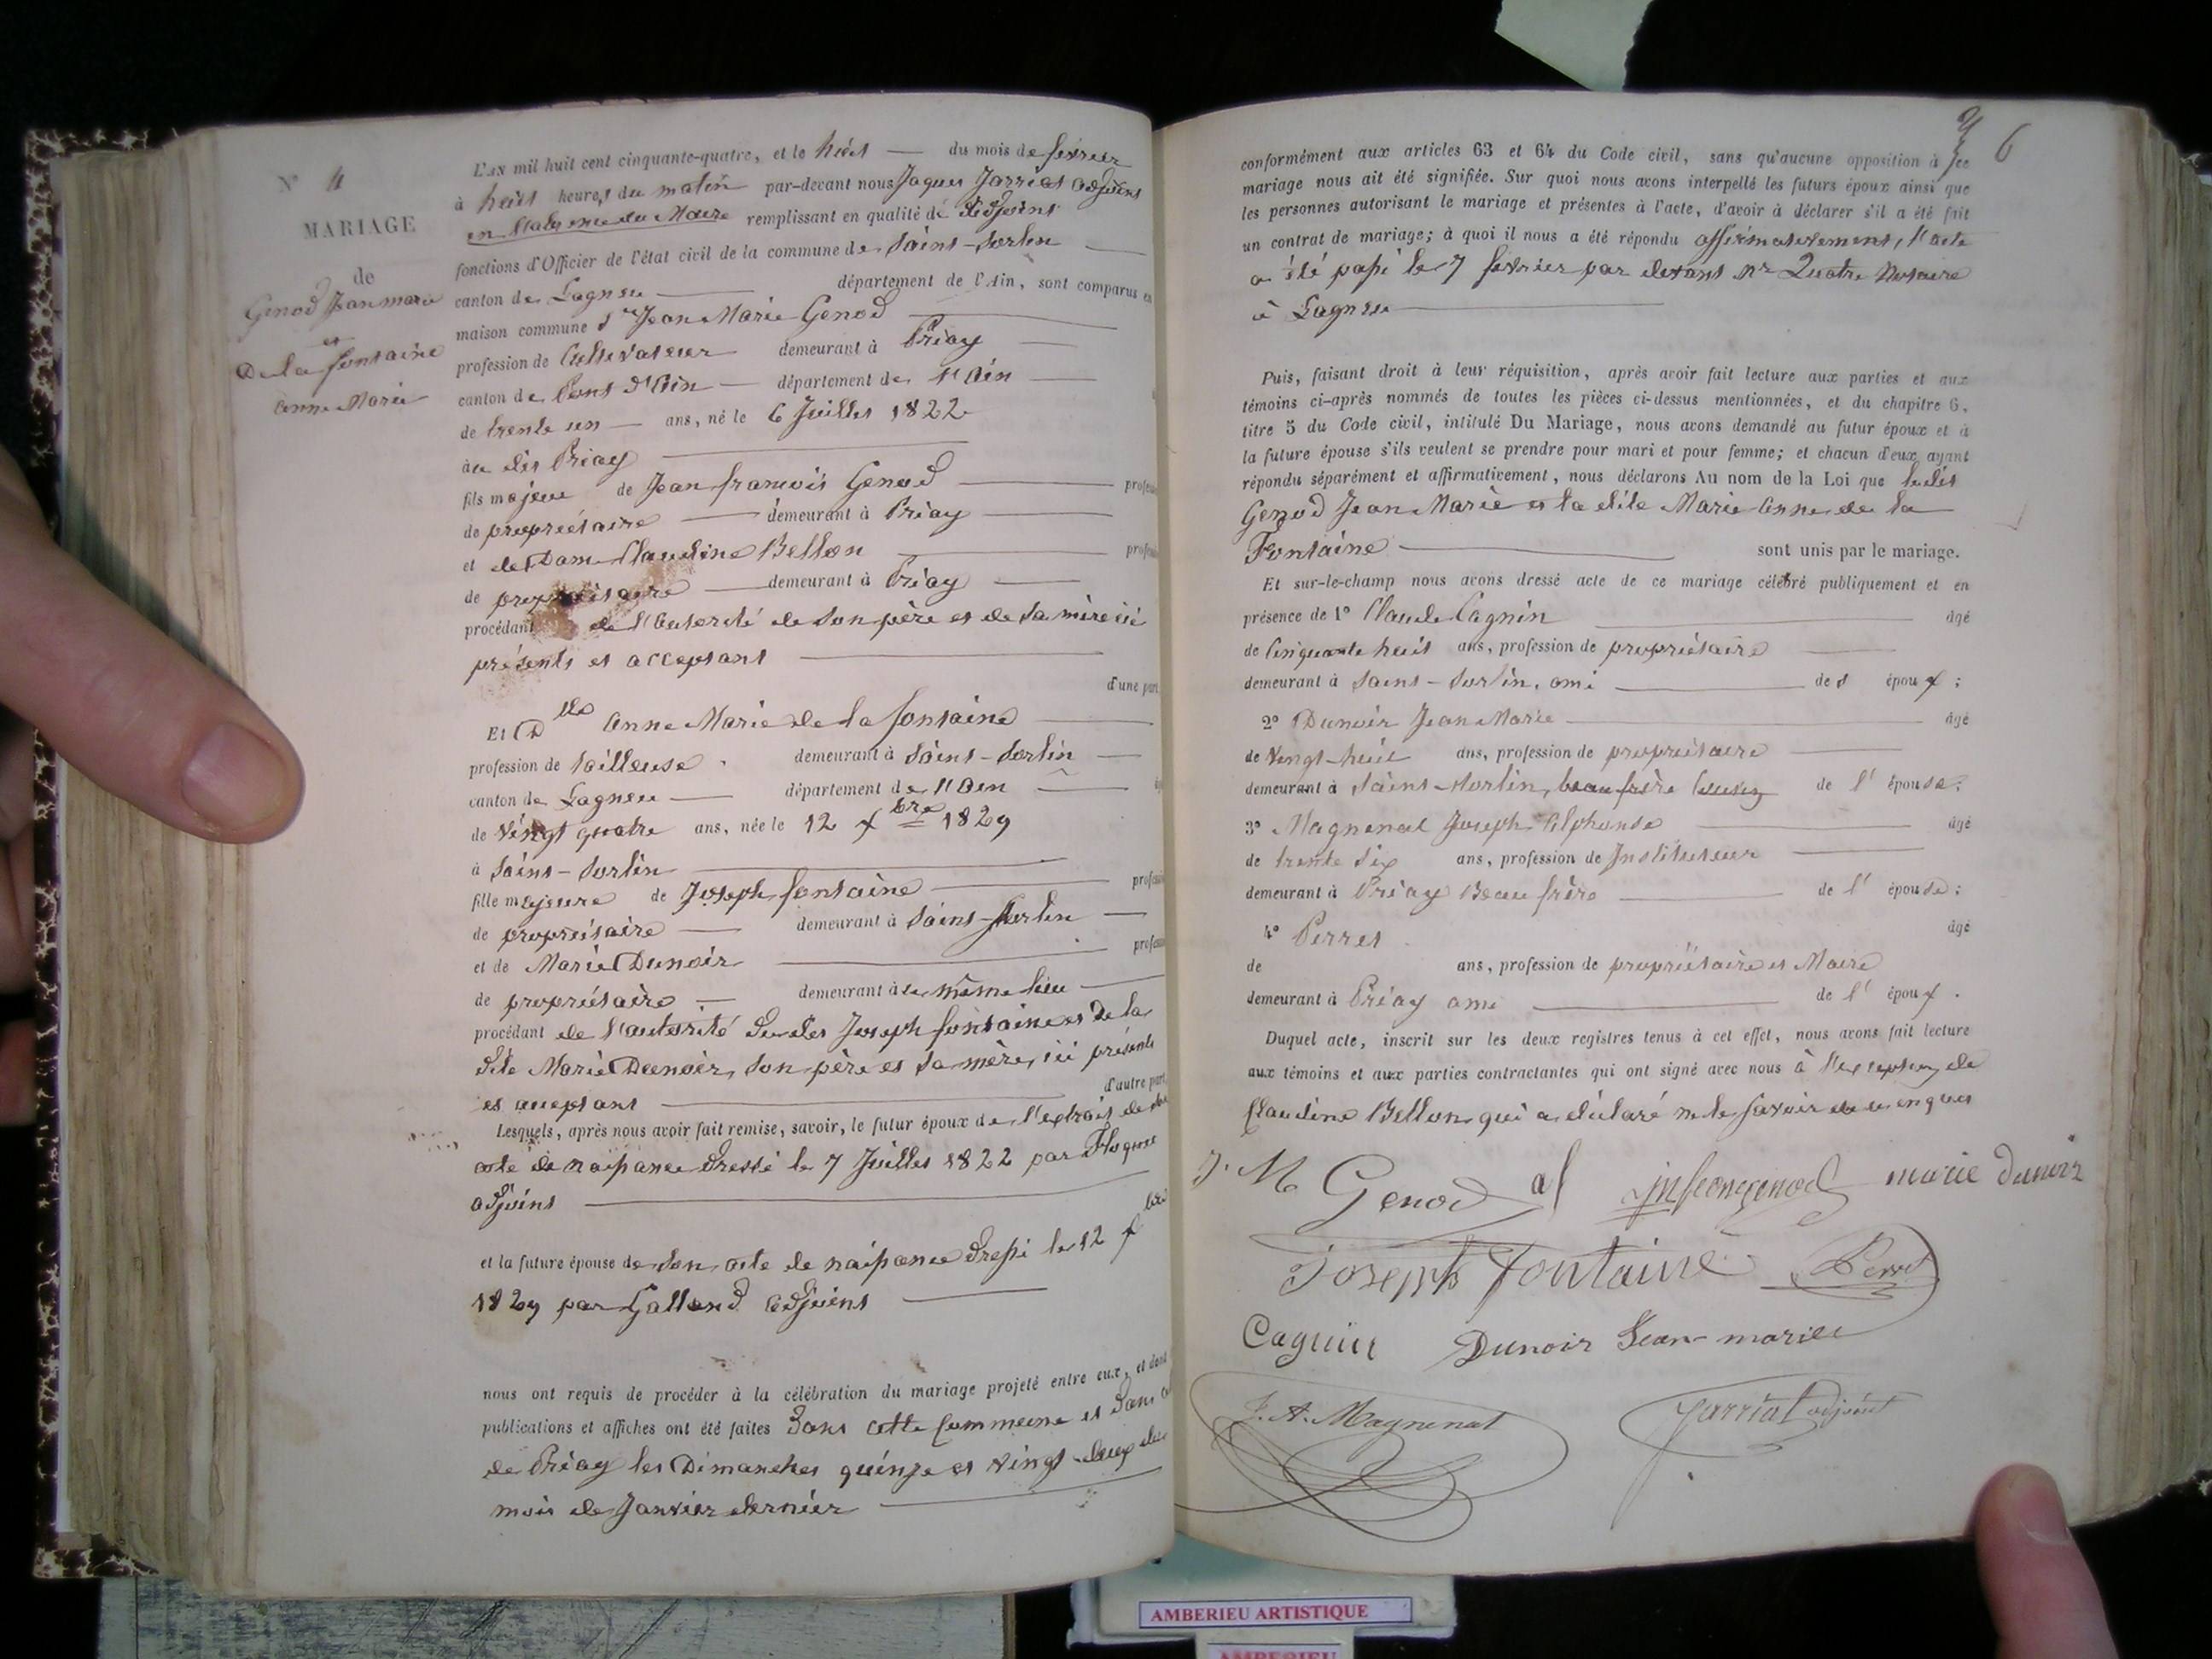 N° 4
MARIAGE
de
Genod Jean marie
et
De la fontaine
anne Marie
L'AN mil huit cent cinquante-quatre, et le huit du mois de fevrier
à huit heures du matin par-devant nous Jaques Jarriat adjoint
en l'absence du Maire remplissant en qualité de d'adjoint
fonctions d'Officier de l'état civil de la commune de Saint-Sorlin
canton de Lagneu département de l'Ain, sont comparus en
maison commune Sr Jean Marie Genod
profession de Cultivateur demeurant à Priay
canton de Pont d'Ain département de l'Ain
de trente un ans, né le 6 Juillet 1822
au dit Priay
fils majeur de Jean francois Genod profess
de propriétaire demeurant à Priay
et de Dam Claudine Bellon profess
de propriétaire demeurant à Priay
procédant de l'autorité de son père et de sa mère ici
présents et acceptant
d'une part.
Et Dlle Anne Marie de la fontaine
profession de tailleuse demeurant à Saint-Sorlin
canton de Lagneu département de l'Ain
de vingt quatre ans, née le 12 Xbre 1829
à Saint-Sorlin
fille majeure de Joseph fontaine profess
de propriétaire demeurant à Saint-Sorlin
et de Marie Dunoir profess
de propriétaire demeurant à le même lieu
procédant de l'autorité du dit Joseph fontaine et de la
dite Marie Dunoir, son père et sa mère, ici présents
et acceptant d'autre part.
Lesquels, après nous avoir fait remise, savoir, le futur époux de l'extrait de son
acte de naissance dressé le 7 Juillet 1822 par
adjoint
et la future épouse de son acte de naissance dressé le 12 Xbre
1829 par Galland adjoint
nous ont requis de procéder à la célébration du mariage projeté entre eux, et dont
publications et affiches ont été faites dans cette commune et dans
de Priay les Dimanches quinze et vingt-deux du
mois de Janvier dernier
6
conformément aux articles 63 et 64 du Code civil, sans qu'aucune opposition à ce
mariage nous ait été signifiée. Sur quoi nous avons interpellé les futurs époux ainsi que
les personnes autorisant le mariage et présentes à l'acte, d'avoir à déclarer s'il a été fait
un contrat de mariage; à quoi il nous a été répondu affirmativement, l'acte
a été passé le 7 février par devant Mr Quatre Notaire
à Lagneu
Puis, faisant droit à leur réquisition, après avoir fait lecture aux parties et aux
témoins ci-après nommés de toutes les pièces ci-dessus mentionnées, et du chapitre 6,
titre 5 du Code civil, intitulé Du Mariage, nous avons demandé au futur époux et à
la future épouse s'ils veulent se prendre pour mari et pour femme; et chacun d'eux ayant
répondu séparément et affirmativement, nous déclarons Au nom de la Loi que le dit
Genod Jean Marie et la dite Marie Anne de la
Fontaine sont unis par le mariage.
Et sur-le-champ nous avons dressé acte de ce mariage célébré publiquement et en
présence de 1° Claude Cagnin âgé
de cinquante huit ans, profession de propriétaire
demeurant à Saint-Sorlin, ami des époux;
2° Dunoir Jean Marie âgé
de vingt-huit ans, profession de propriétaire
demeurant à Saint-Sorlin, beau frère de l'épouse;
3° Magnenat Joseph Alphonse âgé
de trente six ans, profession de Instituteur
demeurant à Priay Beau frère de l'épouse;
4° Perret âgé
de ans, profession de propriétaire et Maire
demeurant à Priay ami de l'époux.
Duquel acte, inscrit sur les deux registres tenus à cet effet, nous avons fait lecture
aux témoins et aux parties contractantes qui ont signé avec nous à l'exception de
Claudine Bellon qui a déclaré ne le savoir de ce enquis
J. M Genod af genod marie dunoir
Joseph fontaine Perret
Cagnin Dunoir Jean-marie
J. A. Magnenat Jarriat adjoint
AMBERIEU ARTISTIQUE
AMBERIEU